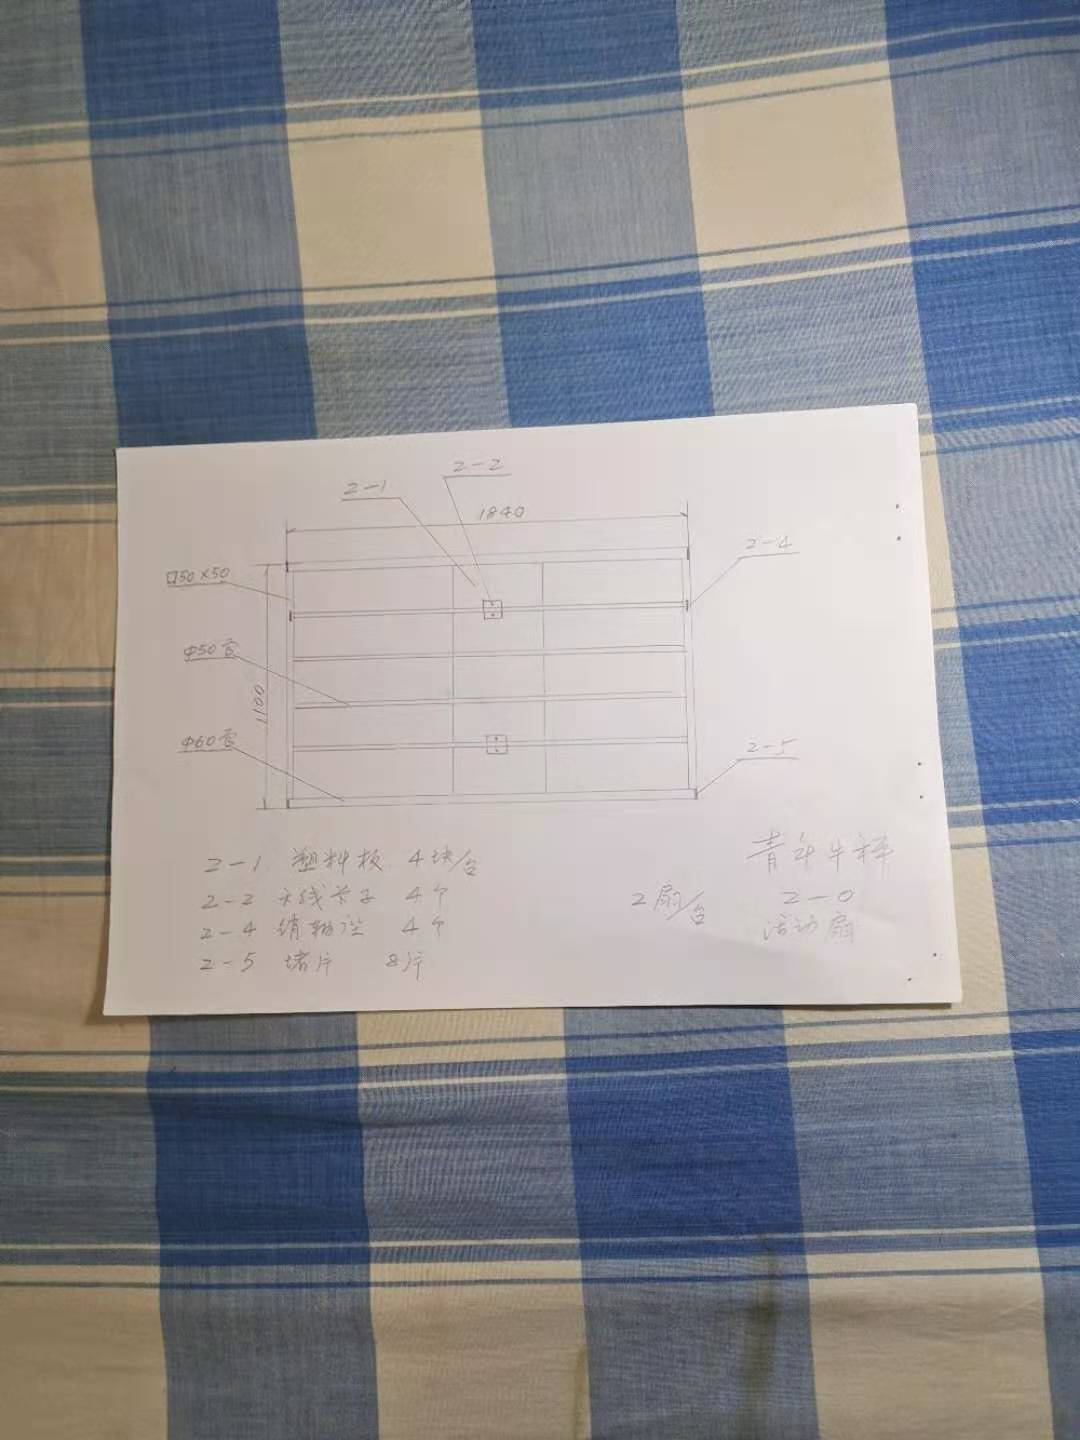 2-2
2-1
1840
2-4
□50×50
Φ50管
1100
Φ60管
2-5
2-1 塑料板 4块/台
2-2 天线卡子 4个
2-4 销轴 4个
2-5 堵片 8片
2扇/台
青年牛
2-0
活动扇